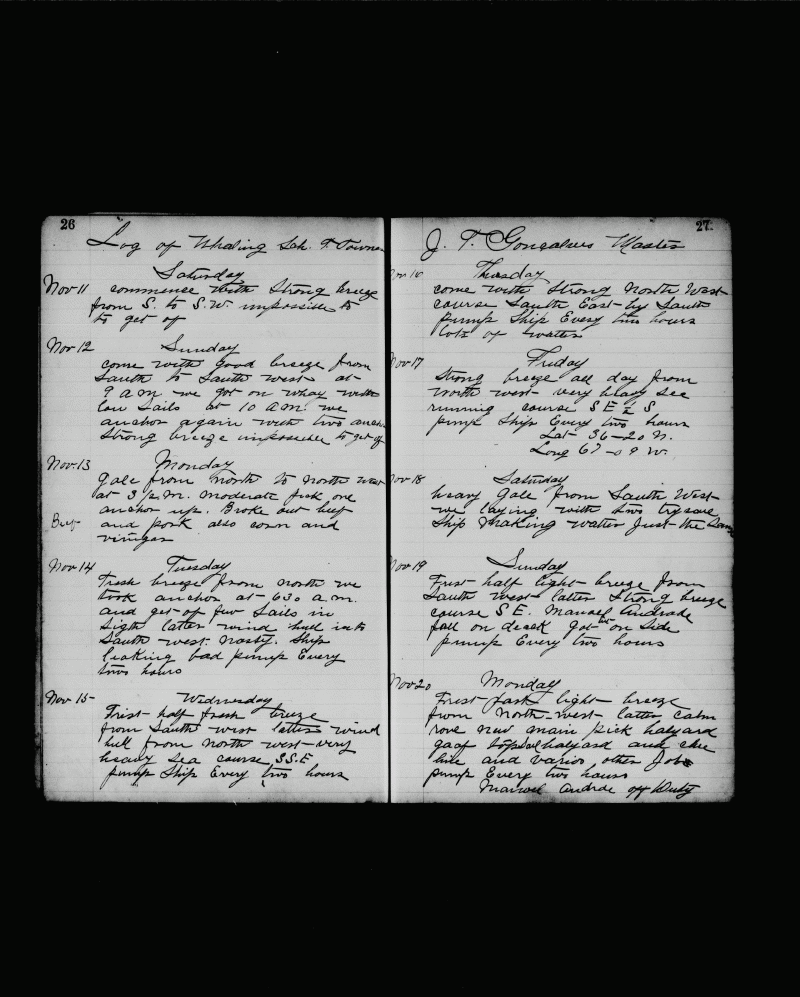 26
Log of Whaling Sch. F. Towne
Saturday
Nov 11 commence with Strong breeze
from S. to S.W. impossible to
to get of
Nov 12 Sunday
come with good breeze from
South to South west at
9 a m. we got on whay with
low Sails at 10 a m. we
anchor again with two anchor
Strong breeze impossible to get of
Nov. 13 Monday
gale from north to north west
at 3 p.m. moderate pick one
anchor up. Broke out beef
Beef and pork also corn and
vinigar
Nov 14 Tuesday
Fresh breeze from north we
took anchor at 630 a.m.
and get of few Sails in
Sigth latter wind hull into
South west. nasty. Ship
leaking bad pump Every
two hours
Nov 15 Wednesday
Frist half fresh breeze
from South west latter wind
hull from north west very
heavy Sea course S.S.E
pump Ship Every two hours
27.
J. T. Gonsalves Master
Nov 16 Thusday
come with Strong North West
course South East by South
pump Ship Every two hours
lots of water
Nov 17 Friday
Strong breeze all day from
north west very heavy see
running course S E E S
pump Ship Every two hours
Lat 36-20 N.
Long 67-09 W.
Nov 18 Saturday
heavy gale from South West
we laying with two trysave
Ship making water Just the Same
Nov 19 Sunday
Frist half light breeze from
South west latter Strong breeze
course S E. Manoel Andrade
fall on deack got hut on Side
pump Every two hours
Nov 20 Monday
Frist part light breeze
from north-west latter calm
rove new main pick halyard
gaof topsal halyard and clue
line and varios other Jobs
pump Every two hours
Manoel Andrade off Duty